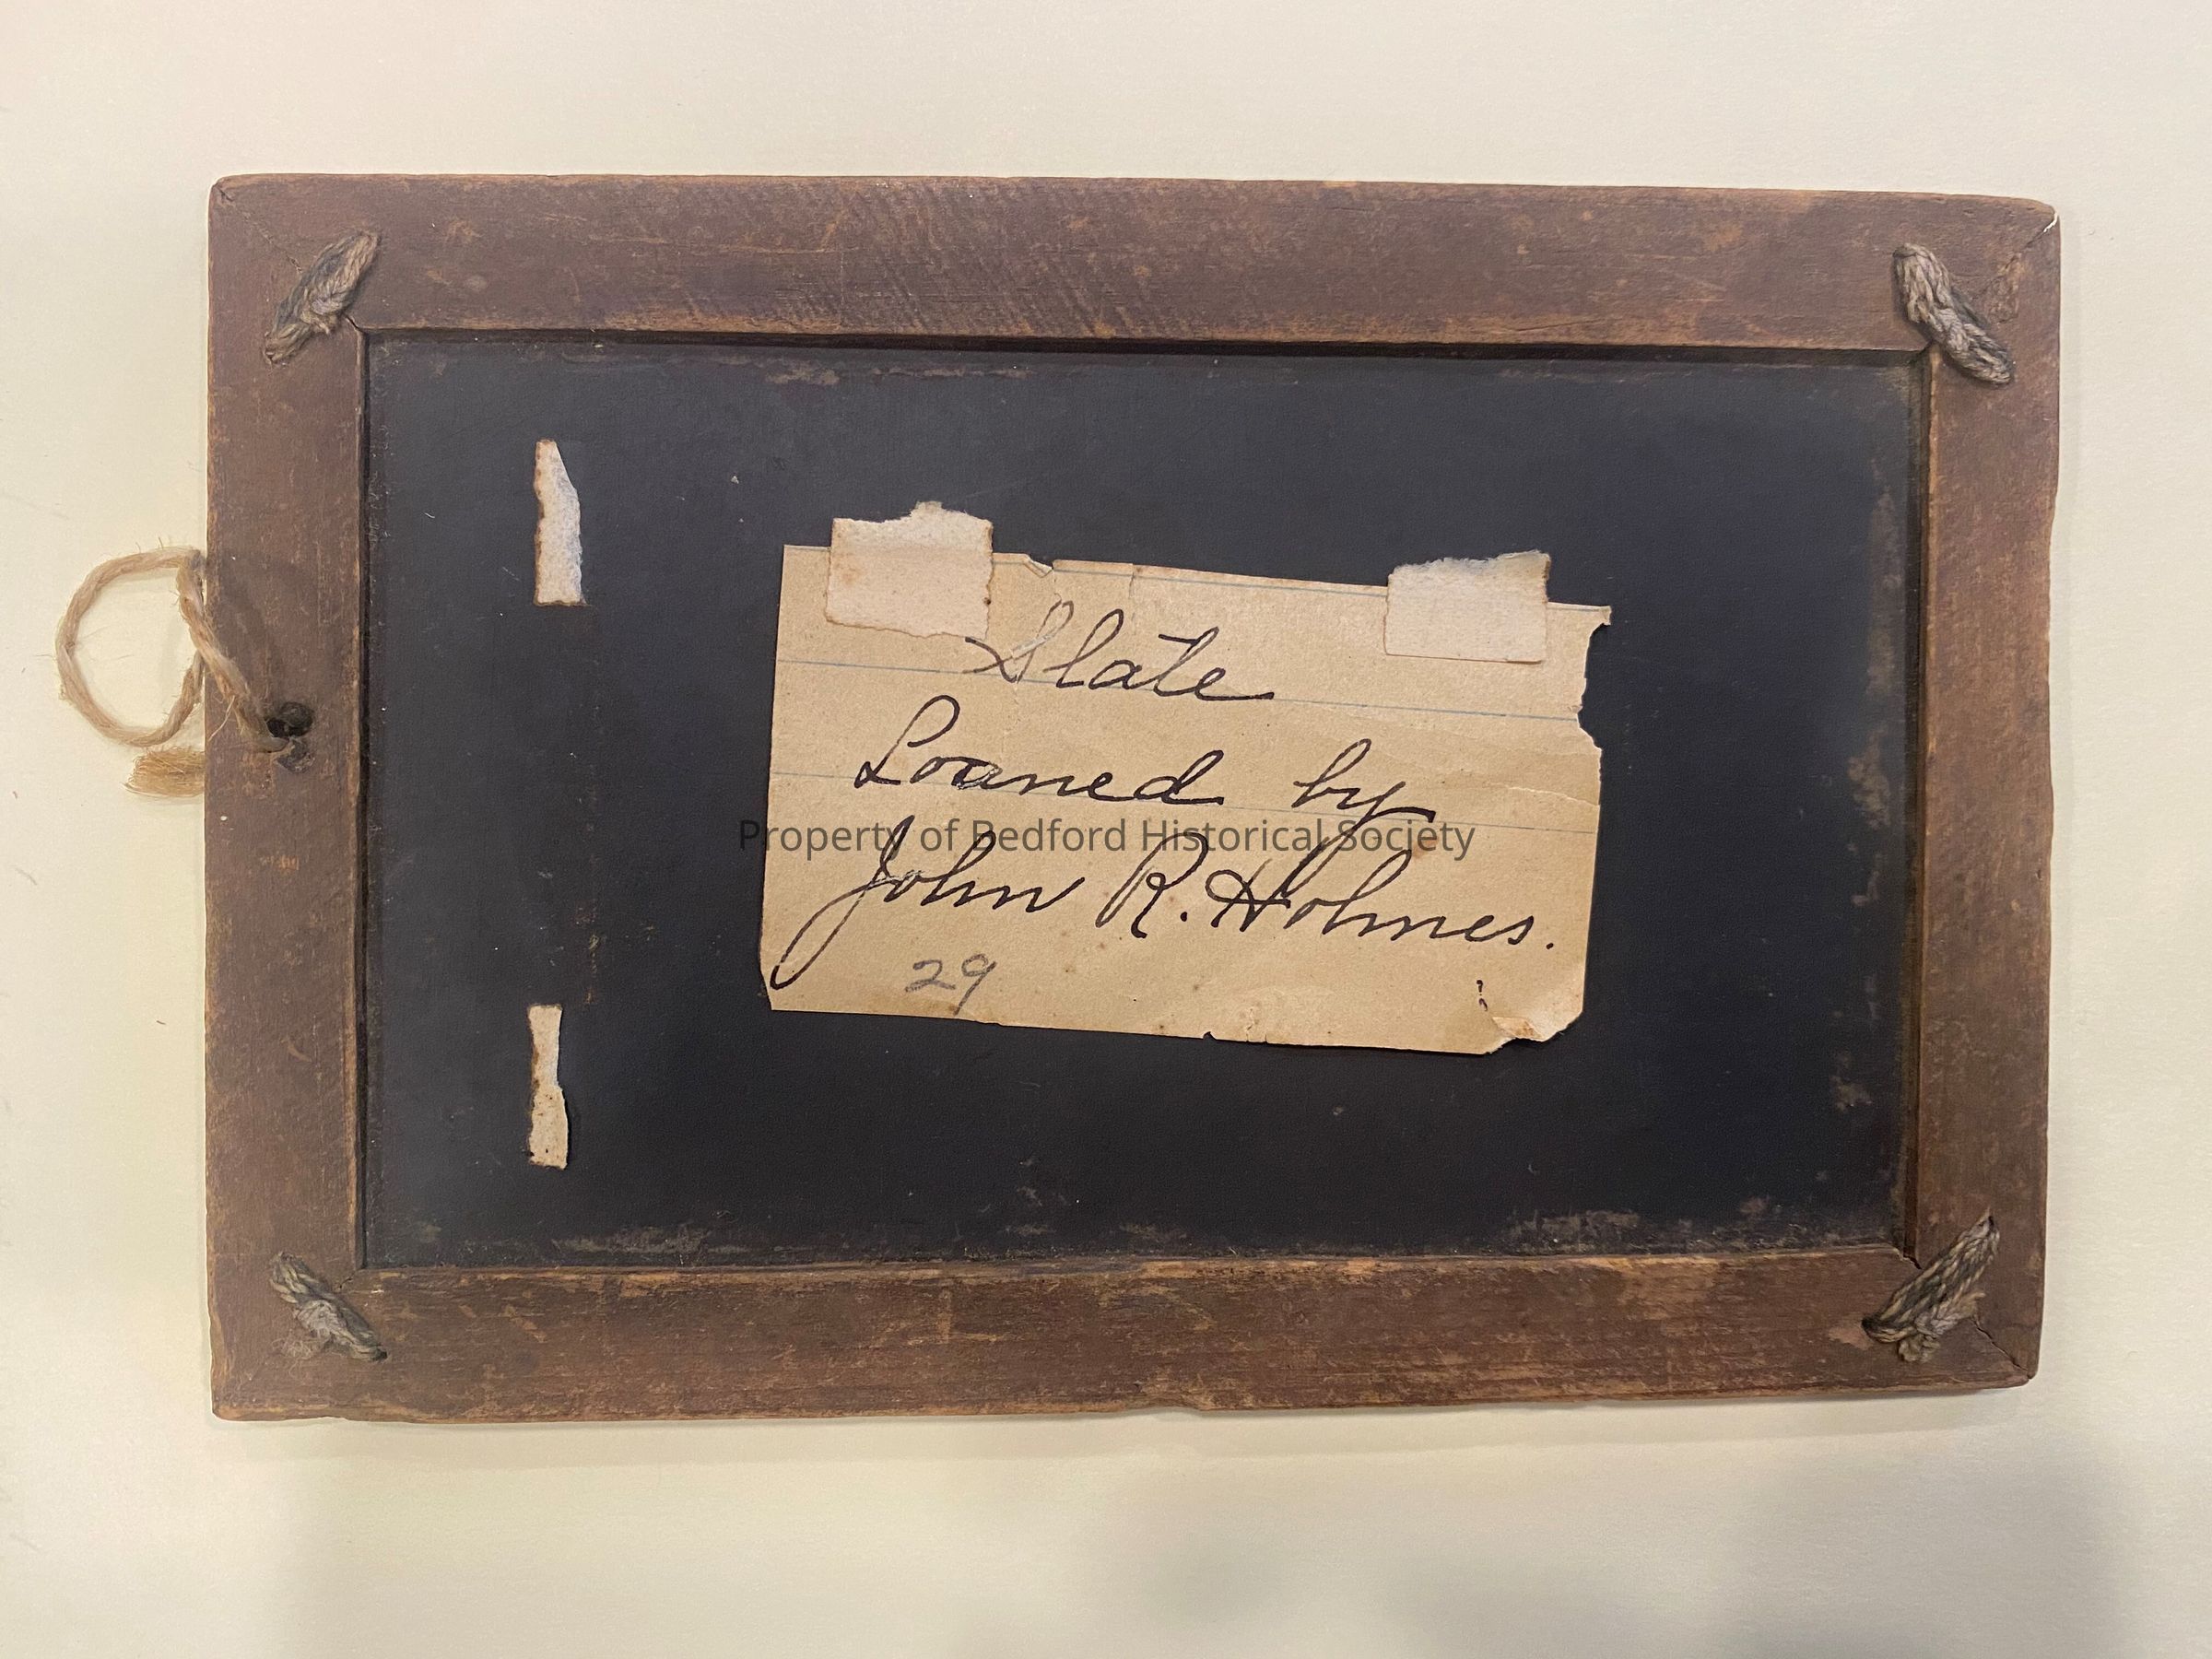 Slate
Loaned by
Property of Bedford Historical Society
John R. Holmes.
29